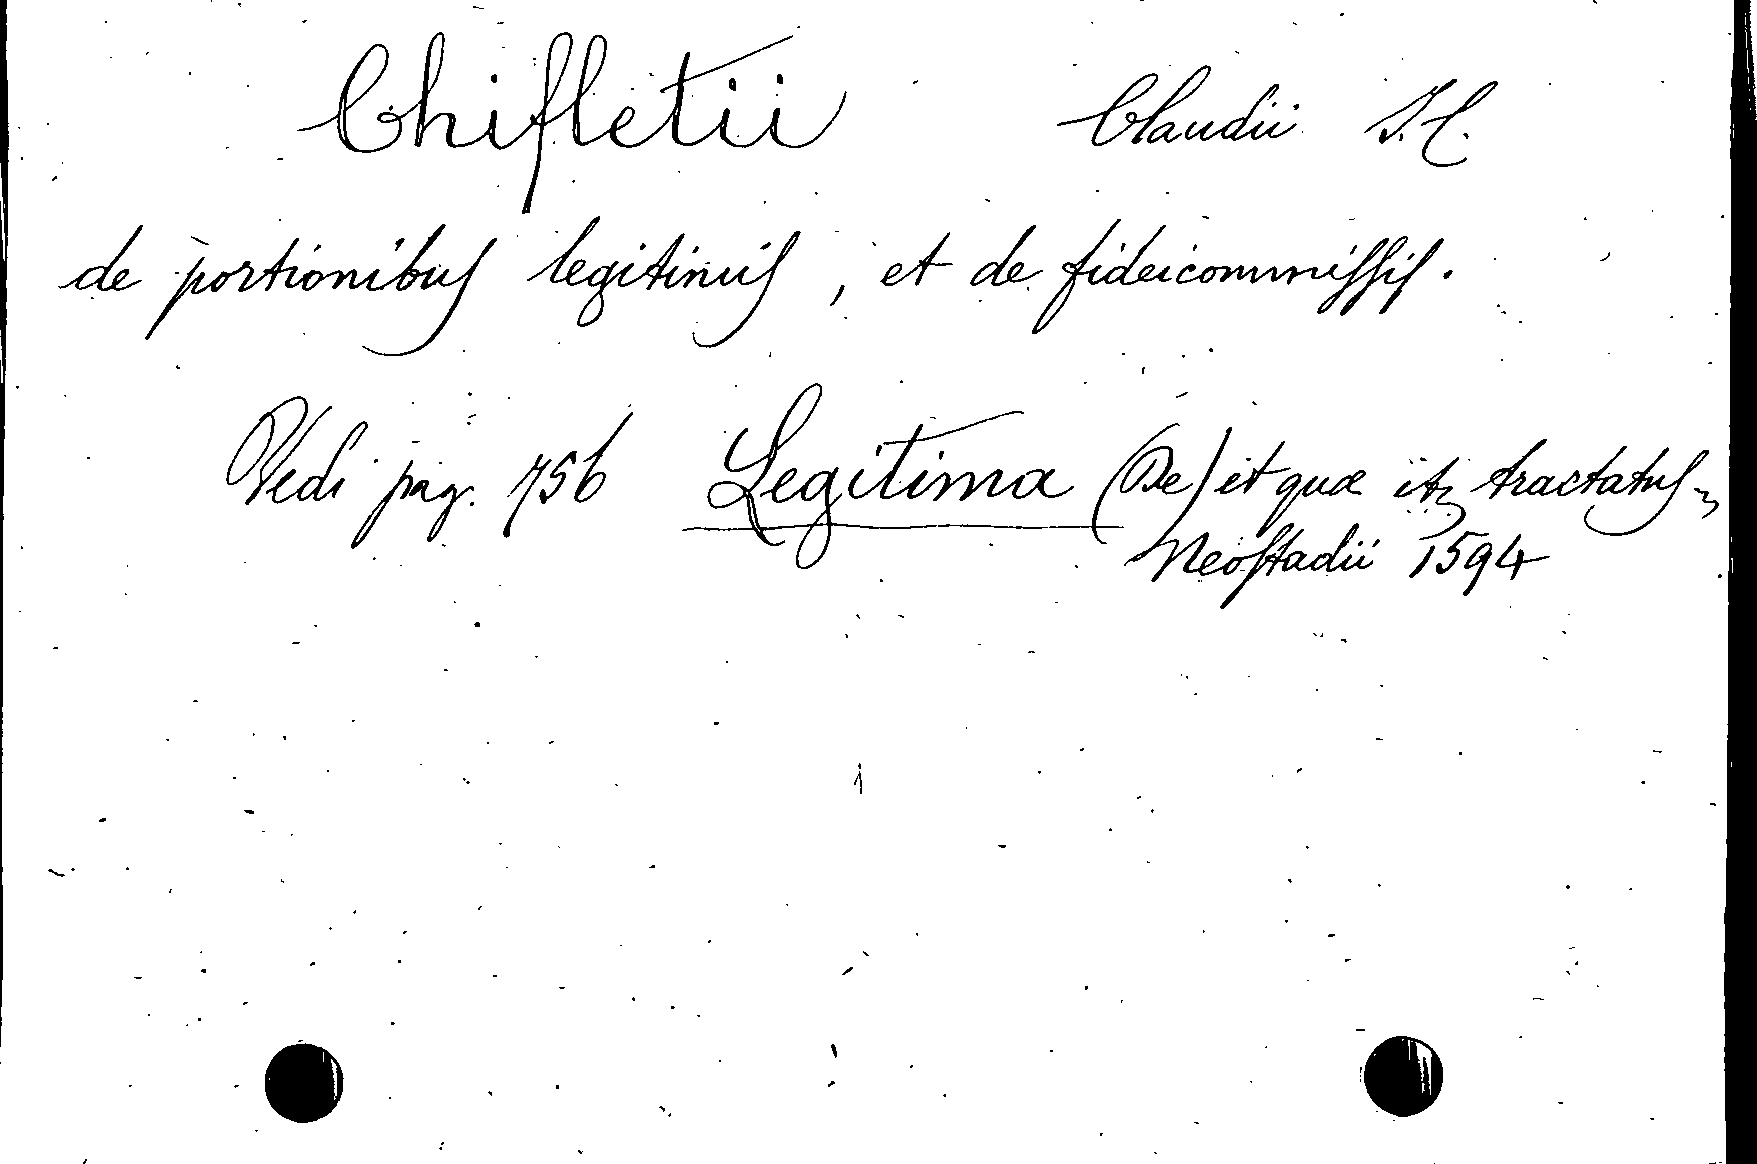 Chifletii Claudii I. C.
de portionibus legitimis, et de fideicommissis.
Vedi pag. 756 Legitima (De) et quæ tractatus
Neostadii 1594